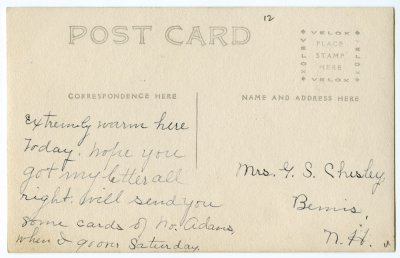 12
POST CARD
VELOX
PLACE
STAMP
HERE
VELOX
CORRESPONDENCE HERE
NAME AND ADDRESS HERE
Extremely warm here
Today. hope you
got my letter all
right. will send you
some cards of No. Adams,
when I go over Saturday.
Mrs. G. S. Chesley,
Bemis,
N. H.